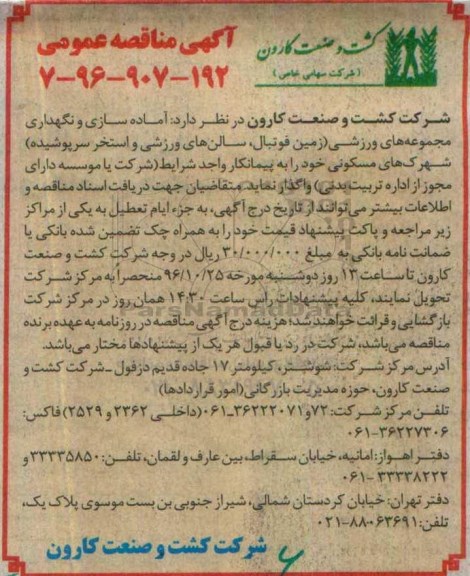 آگهی مناقصه عمومی
۷-۹۶-۹۰۷-۱۹۲
کشت و صنعت کارون
(شرکت سهامی خاص)
شرکت کشت و صنعت کارون در نظر دارد: آماده سازی و نگهداری
مجموعه‌های ورزشی (زمین فوتبال، سالن‌های ورزشی و استخر سرپوشیده)
شهرک‌های مسکونی خود را به پیمانکار واجد شرایط (شرکت یا موسسه دارای
مجوز از اداره تربیت بدنی) واگذار نماید. متقاضیان جهت دریافت اسناد مناقصه و
اطلاعات بیشتر می‌توانند از تاریخ درج آگهی، به جزء ایام تعطیل به یکی از مراکز
زیر مراجعه و پاکت پیشنهاد قیمت خود را به همراه چک تضمین شده بانکی یا
ضمانت نامه بانکی به مبلغ ۳۰/۰۰۰/۰۰۰ ریال در وجه شرکت کشت و صنعت
کارون تا ساعت ۱۳ روز دوشنبه مورخه ۹۶/۱۰/۲۵ منحصراً به مرکز شرکت
تحویل نمایند، کلیه پیشنهادات رأس ساعت ۱۴:۳۰ همان روز در مرکز شرکت
بازگشایی و قرائت خواهند شد؛ هزینه درج آگهی مناقصه در روزنامه به عهده برنده
مناقصه می‌باشد، شرکت در رد یا قبول هر یک از پیشنهادها مختار می‌باشد.
آدرس مرکز شرکت: شوشتر، کیلومتر ۱۷ جاده قدیم دزفول ـ شرکت کشت و
صنعت کارون، حوزه مدیریت بازرگانی (امور قراردادها)
تلفن مرکز شرکت: ۷۲ و ۳۶۲۲۲۰۷۱-۰۶۱ (داخلی ۲۳۶۲ و ۲۵۲۹) فاکس:
۰۶۱-۳۶۲۲۷۳۰۶
دفتر اهواز: امانیه، خیابان سقراط، بین عارف و لقمان، تلفن: ۳۳۳۳۵۸۵۰ و
۰۶۱-۳۳۳۳۸۲۲۲
دفتر تهران: خیابان کردستان شمالی، شیراز جنوبی بن بست موسوی پلاک یک،
تلفن: ۰۲۱-۸۸۰۶۳۶۹۱
شرکت کشت و صنعت کارون